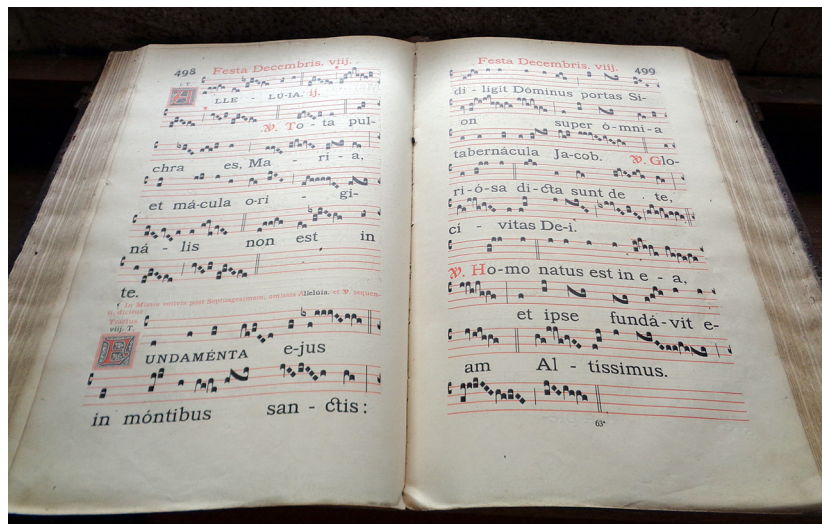 498
Festa Decembris. viij.
ALLE - LÚ-IA. ij.
℣. To - ta pul-
chra es, Ma - rí - a,
et mácula o-ri - gi-
ná - lis non est in
te.
¶ In Missis votivis post Septuagesimam, omissis Allelúia. et ℣. sequen-
ti, dicitur
Tractus.
viij. T.
FUNDAMÉNTA e-jus
in móntibus san - ctis:
Festa Decembris. viij.
499
di - ligit Dóminus portas Si-
on super ó-mni-a
tabernácula Ja-cob. ℣. Glo-
ri-ó-sa di-cta sunt de te,
cí - vitas De-i.
℣. Ho-mo natus est in e - a,
et ipse fundá-vit e-
am Al - tíssimus.
63*